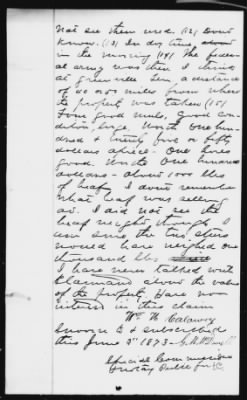 not see them used. (12) Don't
know. (13) In day time,
in the morning (14) The Feder
al army was then I think
at Greenville Ten, a distance
of 40 or 50 miles from where
the property was taken (15)
Four good mules, good con-
dition, large. Worth one hun-
dred & twenty five or fifty
dollars apiece. One horse
good. Worth one hundred
dollars - about 1000 lbs
of beef, I don't remember
what beef was selling
at. I did not see the
beef weighed though I
am sure the two steers
would have weighed one
thousand lbs
I have never talked with
Claimant about the value
of the property. Have no
interest in this claim
Wm H Calaway
Sworn to & subscribed
this June 3d 1873
Special Commissioner
& Notary Public